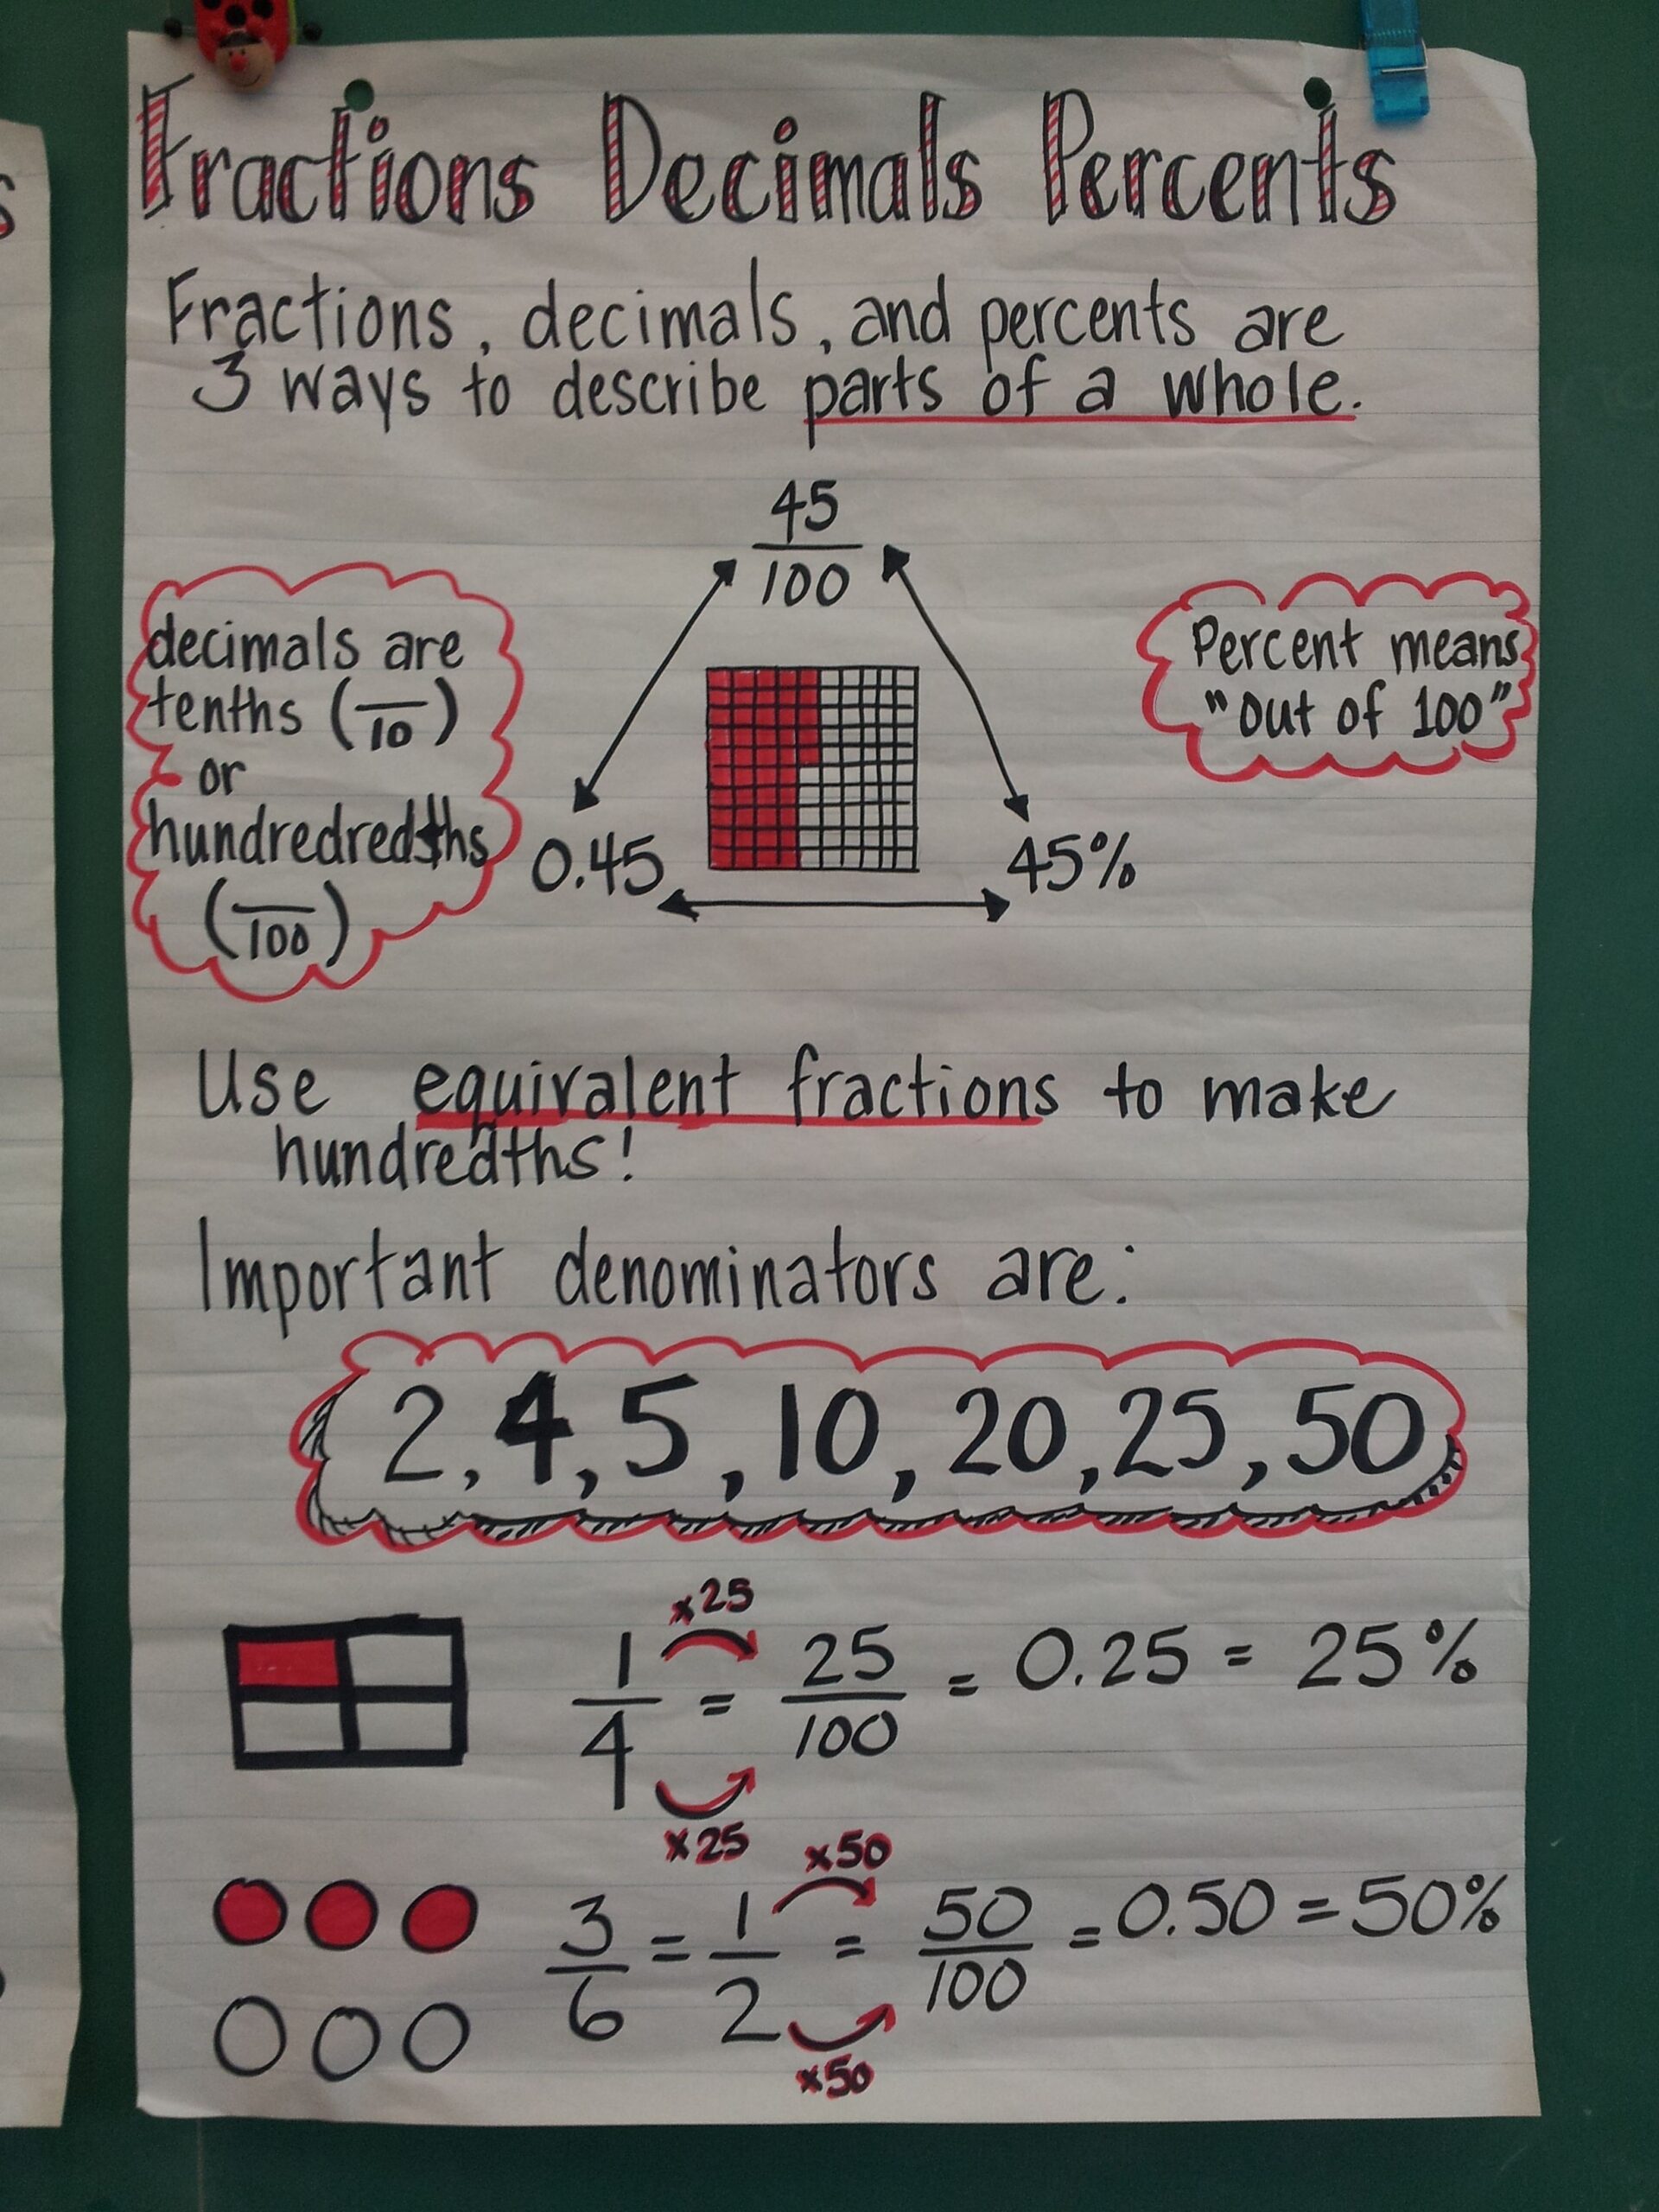 Fractions Decimals Percents
Fractions, decimals, and percents are
3 ways to describe parts of a whole.
45
100
decimals are
tenths (— 10)
or
hundredredths
(— 100)
Percent means
"out of 100"
0.45
45%
Use equivalent fractions to make
hundredths!
Important denominators are:
2, 4, 5, 10, 20, 25, 50
x25
1/4 = 25/100 = 0.25 = 25%
x25
x50
3/6 = 1/2 = 50/100 = 0.50 = 50%
x50